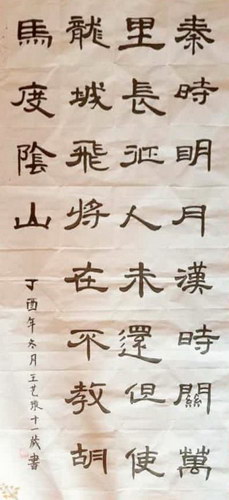 秦時明月漢時關萬
里長征人未還但使
龍城飛將在不教胡
馬度陰山
丁酉年冬月王艺璇十一歲書